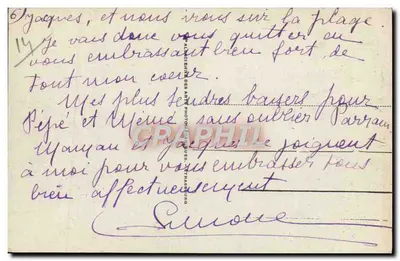 6) Jacques, et nous irons sur la plage.
14 Je vais donc vous quitter en
vous embrassant bien fort de
tout mon coeur.
Mes plus tendres baisers pour
Pépé et Mémé sans oublier
Maman et Jacques se joignent
à moi pour vous embrasser tous
bien affectueusement
Simone
CPARAMA